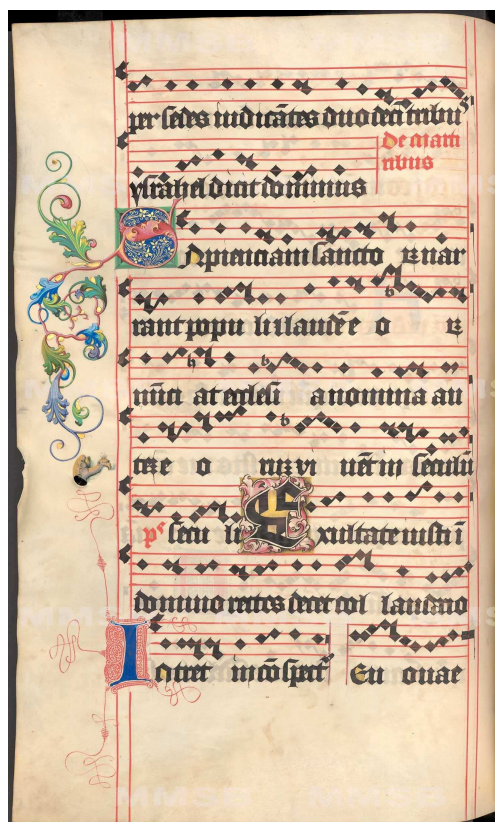 per sedes iudicãtes duodecĩ tribu
de mart
ribus
ysrahel dicit dominus
Sapienciam sancto ꝝ nar
rant popu li ⁊ laudẽ e o ꝝ
nũci at ecclesi a nomina au
teꝫ e o ꝝ vi uẽt in seculũ
pˢ secu li Exultate iusti ĩ
domino rectos decet col laudatio
Intret in cõspectᷣ Eu ouae